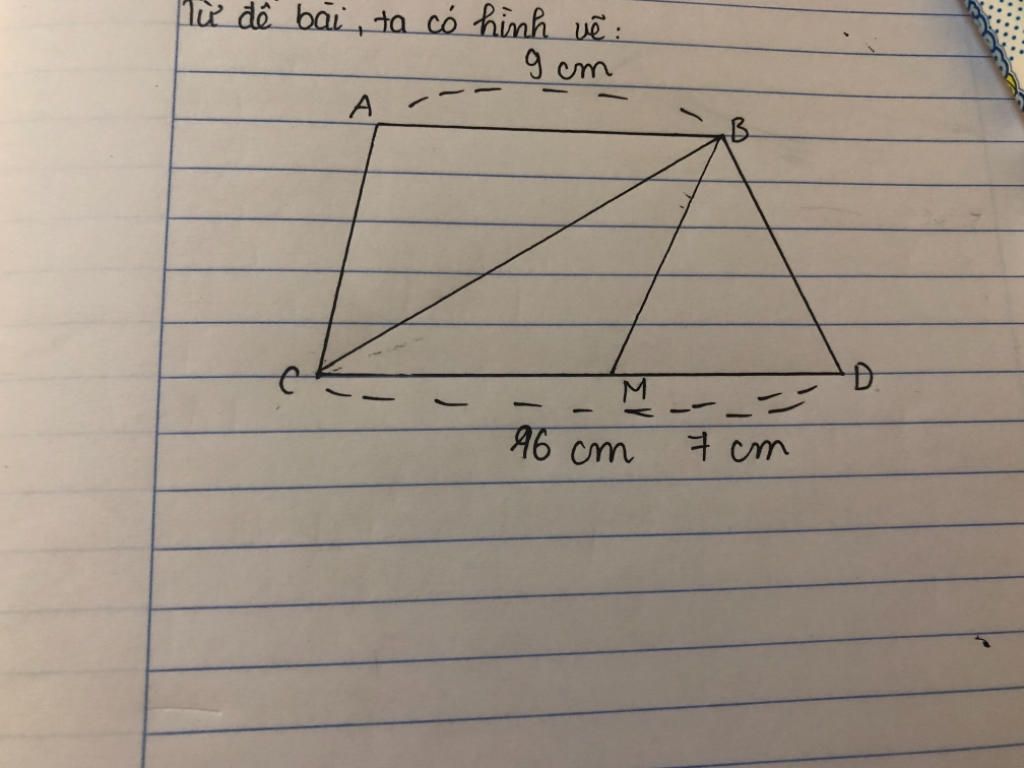 Từ đề bài, ta có hình vẽ:
9 cm
A
B
C
M
D
16 cm
7 cm